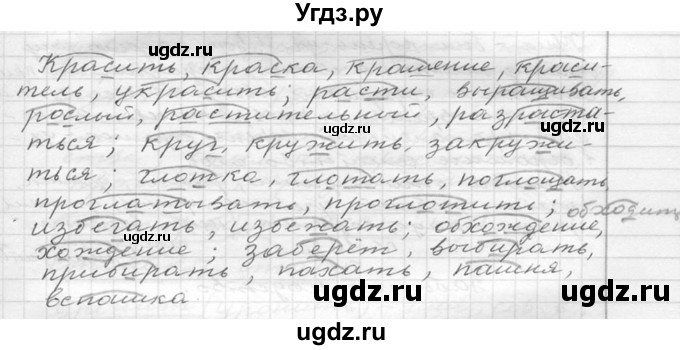 Угдз.ру
Красить, краска, крашение, краси-
тель, украсить; расти, выращивать,
рослый, растительный, разраста-
ться; круг, кружить, закружи-
ться; глотка, глотать, поглощать,
проглатывать, проглотить; обходить,
избегать, избежать; обхождение,
хождение; заберёт, выбирать,
прибирать, пахать, пашня,
вспашка.
ugdz.ru
ugdz.ru
ugdz.ru
ugdz.ru
ugdz.ru
ugdz.ru
ugdz.ru
ugdz.ru
ugdz.ru
ugdz.ru